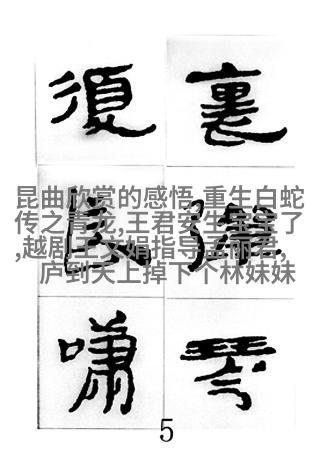 裏彈琴
復長嘯
昆曲欣赏的感悟,重生白蛇
传之青龙,王君安生宝宝了
,越剧王文娟指导孟丽君,
庐到天上掉下个林妹妹
5